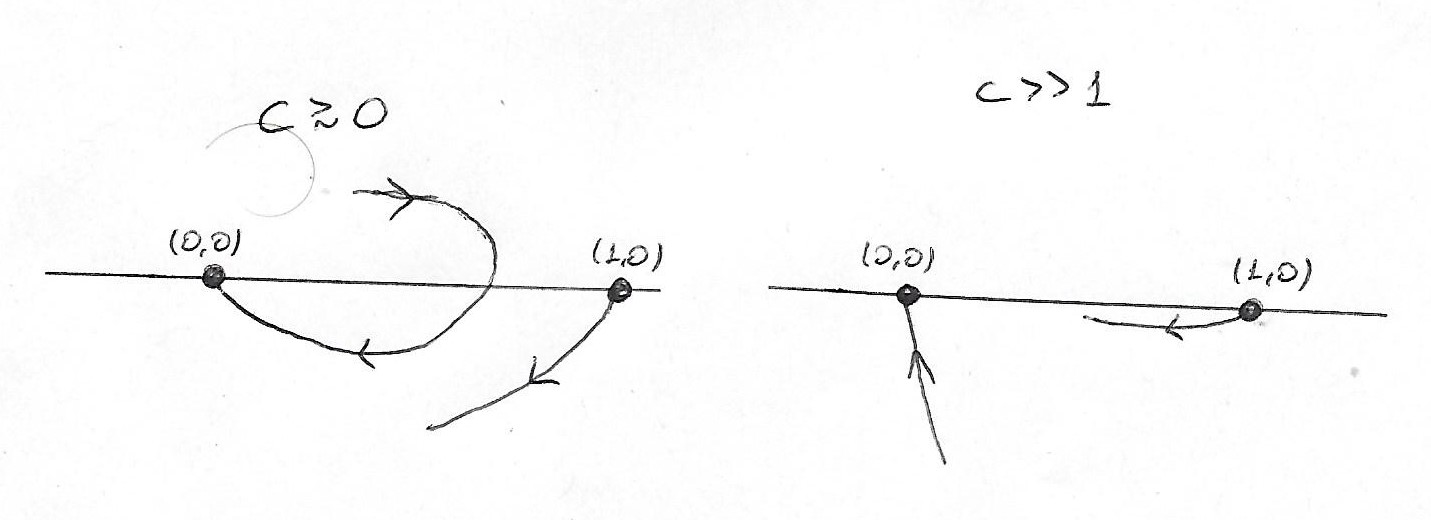 C ≳ 0
(0,0)
(1,0)
c >> 1
(0,0)
(1,0)